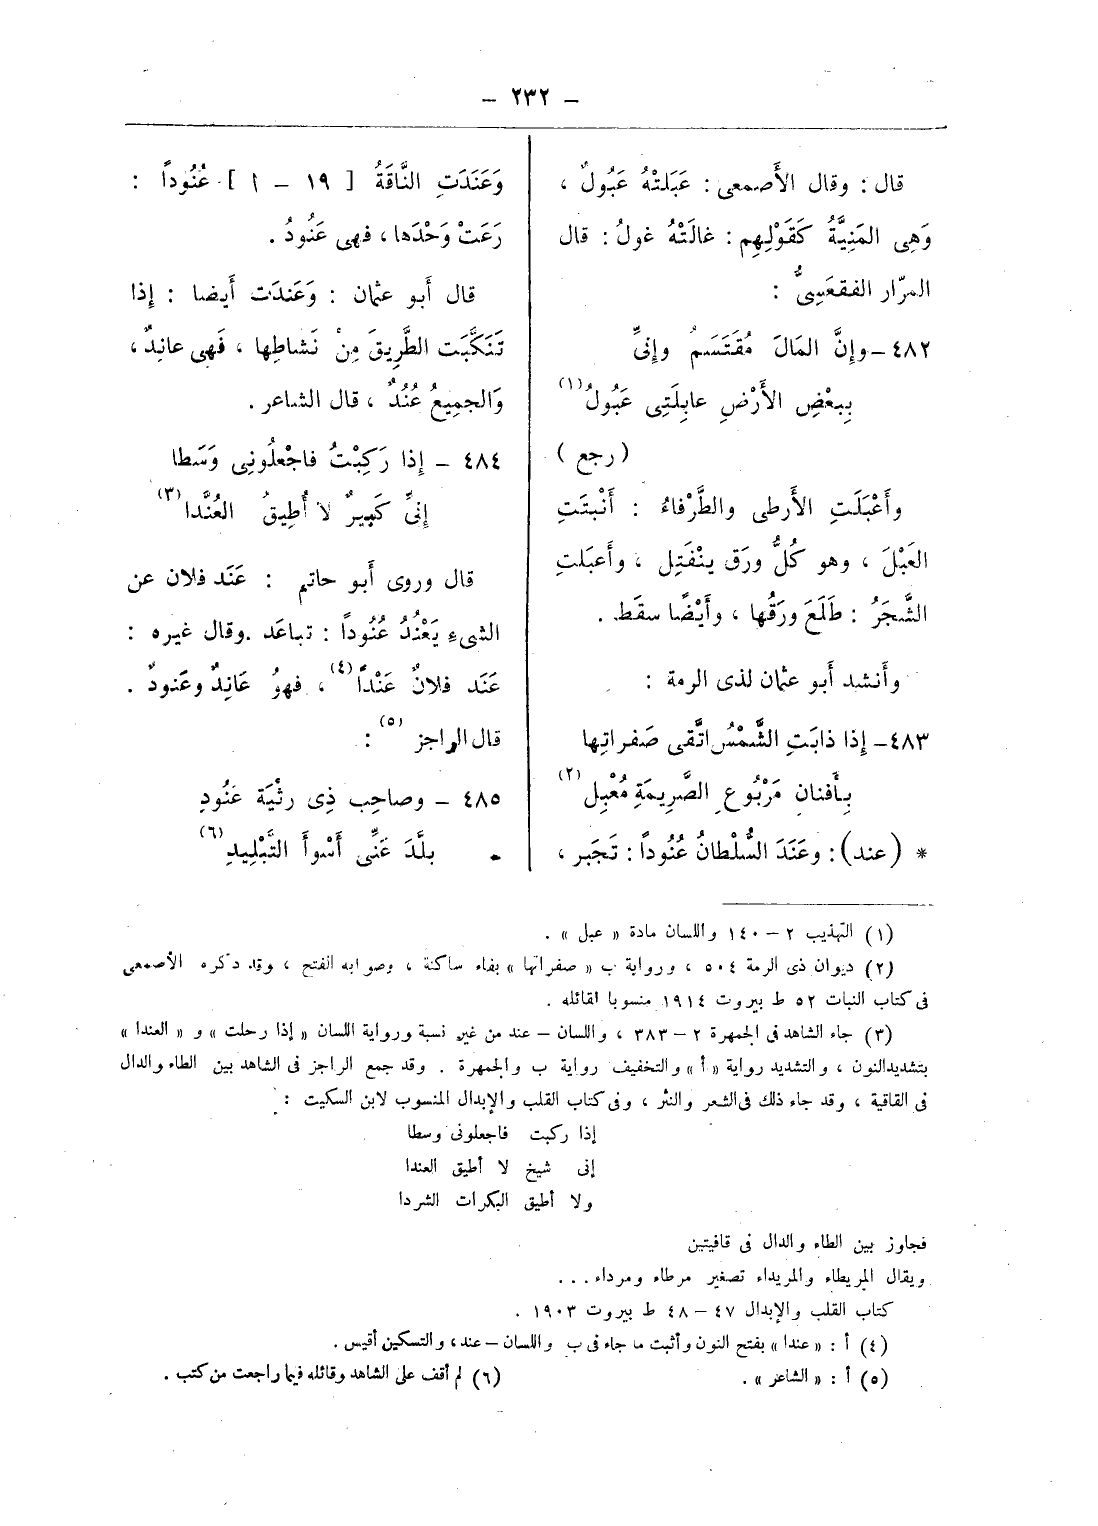 — ٢٣٢ —
قال : وقال الأَصمعى : عَبَلتْهُ عَبُولٌ ،
وَهِى المَنِيَّةُ كَقَوْلِهِم : غالَتْهُ غولُ : قال
المرّار الفقعَسِىُّ :
٤٨٢ – وإِنَّ المَالَ مُقتَسَمٌ وإِنىِّ
بِبعْضِ الأَرْضِ عابِلَتِى عَبُولُ(١)
( رجع )
وأَعْبَلَتِ الأَرطى والطَّرْفاءُ : أَنْبتَتِ
العَبْلَ ، وهو كُلُّ ورَق ينْفَتِل ، وأَعبَلتِ
الشَّجَرُ : طَلَعَ ورَقُها ، وأَيْضًا سقَط .
وأَنشد أَبو عثمان لذى الرمة :
٤٨٣ – إذا ذابَتِ الشَّمْسُ اتَّقى صَفراتِها
بأَفنانِ مَرْبُوعِ الصَّرِيمَةِ مُعْبِل(٢)
* (عند) : وعَنَدَ السُّلْطانُ عُنُوداً : تَجَبر ،
وَعَنَدَتِ النَّاقَةُ [ ١٩ – ١ ] عُنُوداً :
رَعَتْ وَحْدَها ، فهى عَنُودُ .
قال أَبو عثمان : وَعَندَت أَيضا : إِذا
تَنَكَّبَت الطَّرِيقَ مِنْ نَشاطِها ، فَهى عانِدٌ ،
وَالجمِيعُ عُنُدٌ ، قال الشاعر .
٤٨٤ – إذا رَكِبْتُ فاجْعلُونِى وَسَطا
إنىِّ كَبِيرٌ لا أُطِيقُ العُنَّدا(٣)
قال وروى أَبو حاتم : عَنَد فلان عن
الشىءِ يَعْنُدُ عُنُوداً : تباعَد . وقال غيره :
عَنَد فلانٌ عَنْداً(٤) ، فهوُ عَانِدٌ وعَنودٌ .
قال الراجز(٥) :
٤٨٥ – وصاحِب ذِى رثْيَة عَنُودِ
بلَّدَ عَنِّى أَسْوأَ التَّبْلِيدِ(٦)
(١) التهذيب ٢ – ١٤٠ واللسان مادة « عبل » .
(٢) ديوان ذى الرمة ٥٠٤ ، ورواية ب « صفراتها » بفاء ساكنة ، وصوابه الفتح ، وقد ذكره الأصمعى
فى كتاب النبات ٥٢ ط بيروت ١٩١٤ منسوبا لقائله .
(٣) جاء الشاهد فى الجمهرة ٢ – ٣٨٣ ، واللسان – عند من غير نسبة ورواية اللسان « إذا رحلت » و « العندا »
بتشديد النون ، والتشديد رواية « أ » والتخفيف رواية ب والجمهرة . وقد جمع الراجز فى الشاهد بين الطاء والدال
فى القافية ، وقد جاء ذلك فى الشعر والنثر ، وفى كتاب القلب والإبدال المنسوب لابن السكيت :
إذا ركبت فاجعلونى وسطا
إنى شيخ لا أطيق العندا
ولا أطيق البكرات الشردا
فجاوز بين الطاء والدال فى قافيتين
ويقال المريطاء والمريداء تصغير مرطاء ومرداء . . .
كتاب القلب والإبدال ٤٧ – ٤٨ ط بيروت ١٩٠٣ .
(٤) أ : « عندا » بفتح النون وأثبت ما جاء فى ب واللسان – عند ، والتسكين أقيس .
(٥) أ : « الشاعر » .
(٦) لم أقف على الشاهد وقائله فيما راجعت من كتب .